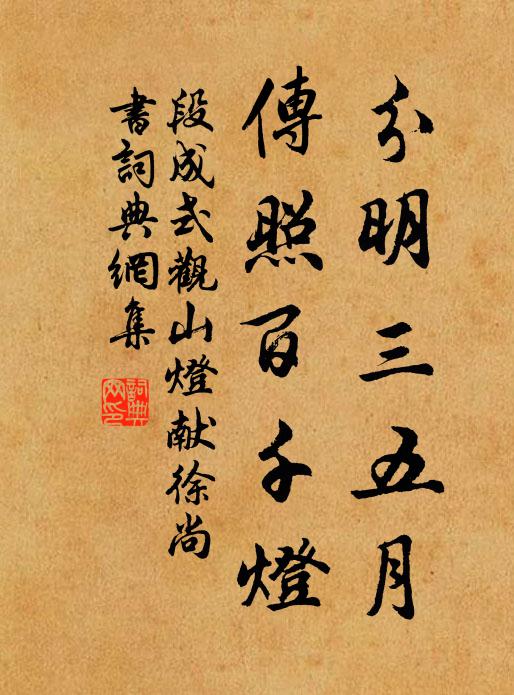 分明三五月
傳照百千燈
段成式觀山燈献徐尚
書詞典網集
詞典網印